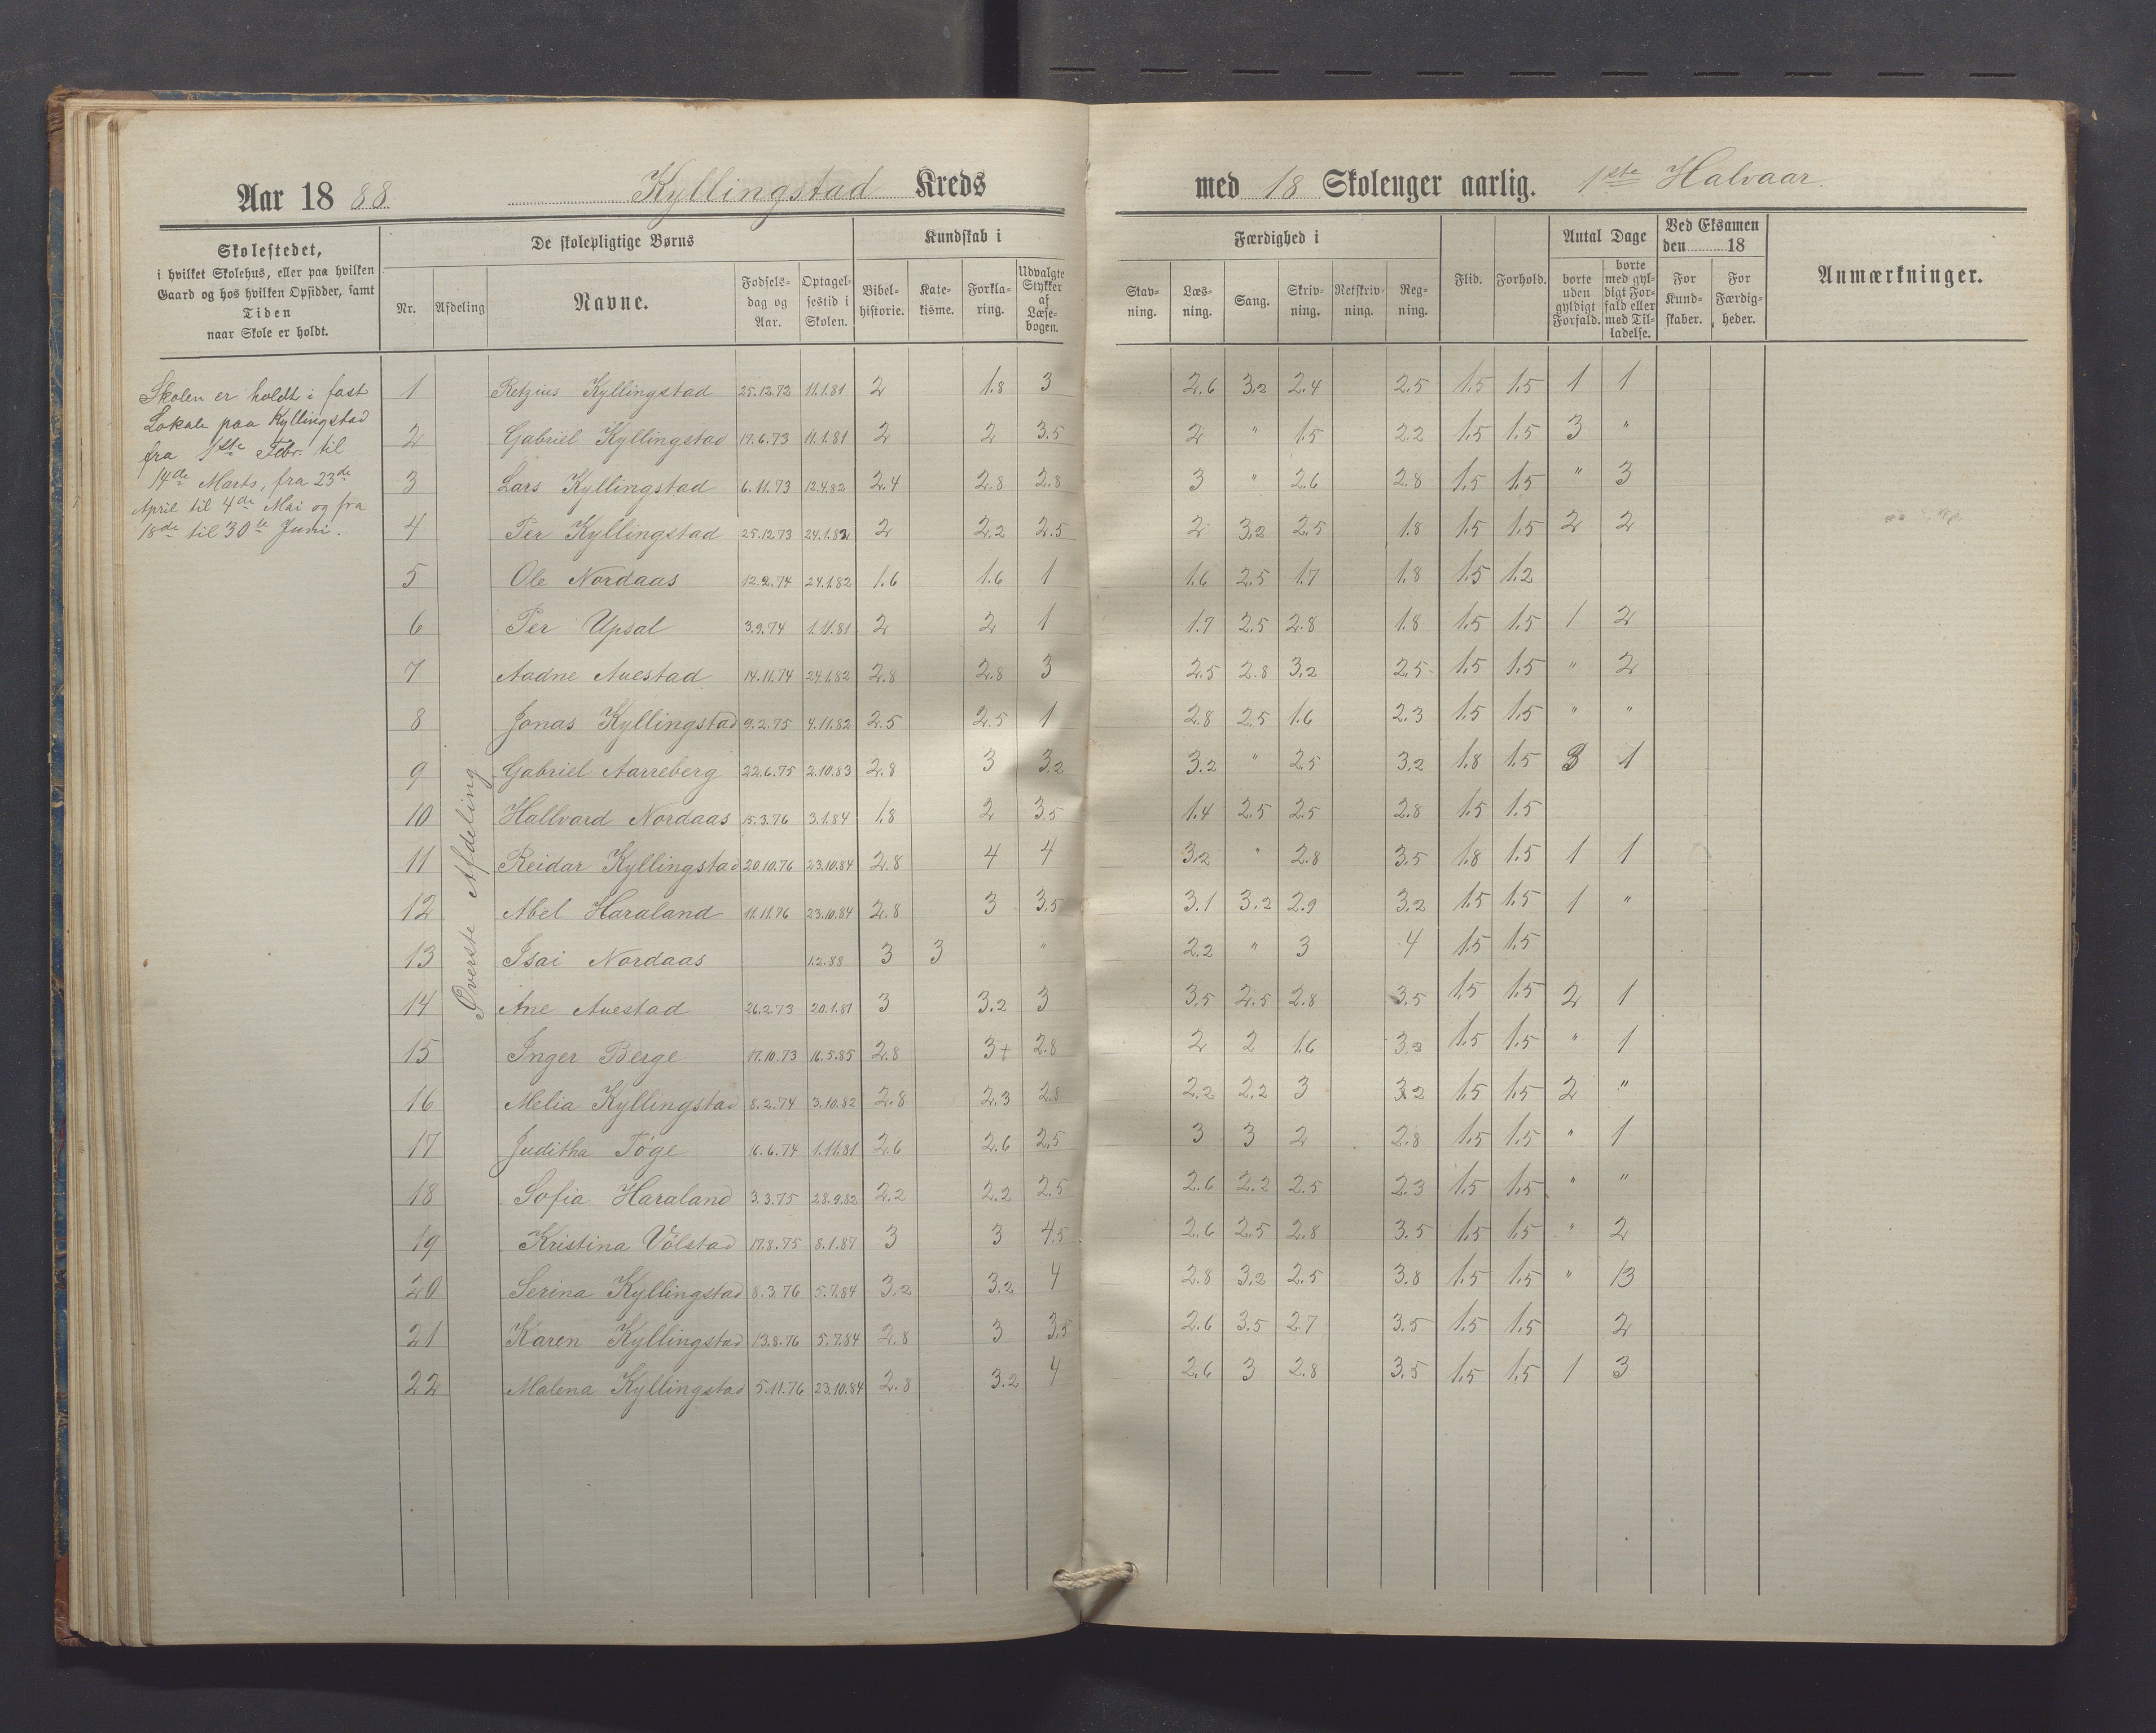 Aar 1888 Kyllingstad Kreds med 18 Skoleuger aarlig. 1ste Halvaar.
Skolestedet,
i hvilket Skolehus, eller paa hvilken
Gaard og hos hvilken Opsidder, samt
Tiden
naar Skole er holdt.
De skolepligtige Børns
Nr. Afdeling Navne. Fødsels-dag og Aar. Optagel-sestid i Skolen.
Kundskab i
Bibel-historie. Kate-kisme. Forkla-ring. Udvalgte Stykker af Læse-bogen.
Færdighed i
Stav-ning. Læs-ning. Sang. Skriv-ning. Retskriv-ning. Reg-ning.
Flid. Forhold.
Antal Dage
borte uden gyldigt Forfald. borte med gyl-digt For-fald eller med Til-ladelse.
Ved Eksamen
den 18
For Kund-skaber. For Færdig-heder.
Anmærkninger.
Skolen er holdt i fast
Lokale paa Kyllingstad
fra 1ste Febr. til
14de Marts, fra 23de
April til 4de Mai og fra
18de til 30te Juni.
Øverste Afdeling
1 Retzius Kyllingstad 25.12.72 11.1.81 2 1.8 3 2.6 3.2 2.4 2.5 1.5 1.5 1 1
2 Gabriel Kyllingstad 17.6.73 11.1.81 2 2 3.5 2 " 1.5 2.2 1.5 1.5 3 "
3 Lars Kyllingstad 6.11.73 12.4.82 2.4 2.8 2.8 3 " 2.6 2.8 1.5 1.5 " 3
4 Per Kyllingstad 25.12.73 24.1.82 2 2.2 2.5 2 3.2 2.5 1.8 1.5 1.5 2 2
5 Ole Nordaas 12.2.74 24.1.82 1.6 1.6 1 1.6 2.5 1.7 1.8 1.5 1.2
6 Per Upsal 3.9.74 1.11.81 2 2 1 1.7 2.5 2.8 1.8 1.5 1.5 1 2
7 Aadne Auestad 14.11.74 24.1.82 2.8 2.8 3 2.5 2.8 3.2 2.5 1.5 1.5 " 2
8 Jonas Kyllingstad 9.2.75 4.11.82 2.5 2.5 1 2.8 2.5 1.6 2.3 1.5 1.5 " "
9 Gabriel Aarreberg 22.6.75 2.10.83 2.8 3 3.2 3.2 " 2.5 3.2 1.8 1.5 3 1
10 Hallvard Nordaas 15.3.76 3.1.84 1.8 2 3.5 1.4 2.5 2.5 2.8 1.5 1.5
11 Reidar Kyllingstad 20.10.76 23.10.84 2.8 4 4 3.2 " 2.8 3.5 1.8 1.5 1 1
12 Abel Haraland 11.11.76 23.10.84 2.8 3 3.5 3.1 3.2 2.9 3.2 1.5 1.5 1 "
13 Isai Nordaas 1.2.88 3 3 " 2.2 " 3 4 1.5 1.5
14 Ane Auestad 26.2.73 20.1.81 3 3.2 3 3.5 2.5 2.8 3.5 1.5 1.5 2 1
15 Inger Berge 17.10.73 16.5.85 2.8 3+ 2.8 2 2 1.6 3.2 1.5 1.5 " 1
16 Melia Kyllingstad 8.2.74 3.10.82 2.8 2.3 2.8 2.2 2.2 3 3.2 1.5 1.5 2 "
17 Juditha Töge 6.6.74 1.11.81 2.6 2.6 2.5 3 3 2 2.8 1.5 1.5 " 1
18 Sofia Haraland 3.3.75 28.9.82 2.2 2.2 2.5 2.6 2.2 2.5 2.3 1.5 1.5 " "
19 Kristina Völstad 17.8.75 8.1.87 3 3 4.5 2.6 2.5 2.8 3.5 1.5 1.5 " 2
20 Serina Kyllingstad 8.3.76 5.7.84 3.2 3.2 4 2.8 3.2 2.5 3.8 1.5 1.5 " 13
21 Karen Kyllingstad 13.8.76 5.7.84 2.8 3 3.5 2.6 3.5 2.7 3.5 1.5 1.5 2
22 Malena Kyllingstad 5.11.76 23.10.84 2.8 3.2 4 2.6 3 2.8 3.5 1.5 1.5 1 3